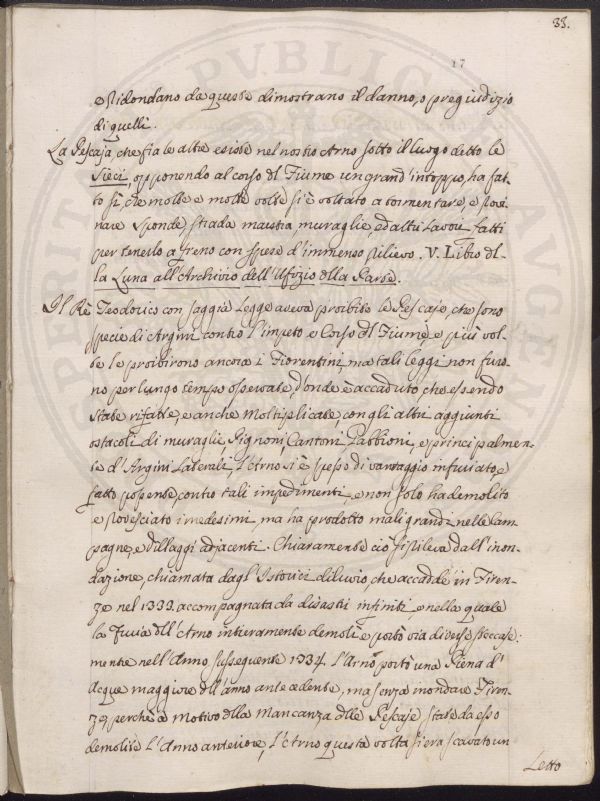 33.
17
e Ridondano da queste dimostrano il danno, o pregiudizio
di quelli.
La Pescaja che fra le altre esiste nel nostro Arno sotto il luogo detto le
Sieci, opponendo al corso dl Fiume un grand'intoppo, ha fat-
to sì, che molte e molte volte si è voltato a tormentare, e Rovi-
nare Sponde, strada maestra, muraglie, ed altri Lavori fatti
per tenerlo a freno con spese d'immenso Rilievo. V. Libro dl-
la Luna all'Archivio dell'Ufizio dlla Parte.
Il Rè Teodorico con saggia Legge aveva proibito le Pescaje, che sono
specie di Argini contro l'impeto e Corso dl Fiume, e più vol-
te le proibirono ancora i Fiorentini, ma tali leggi non furo-
no per lungo tempo osservate, d'onde è accaduto che essendo
state rifatte, e anche moltiplicate, con gli altri aggiunti
ostacoli di muraglie, Pignoni, Cantoni, Gabbioni, e principalmen-
te d'Argini Laterali, l'Arno si è spesso di vantaggio infuriato, e
fatto possente, contro tali impedimenti, e non solo ha demolito
e Rovesciato i medesimi, ma ha prodotto mali grandi nelle Cam-
pagne, e Villaggi adjacenti. Chiaramente ciò si Rileva dall'inon-
dazione, chiamata dagl'Istorici diluvio, che accadde in Firen-
ze nel 1333. accompagnata da disastri infiniti, e nella quale
la Furia dll'Arno intieramente demolì e portò via diverse Pescaje:
mentre nell'Anno susseguente 1334. l'Arno portò una Piena d'
Acque maggiore dll'anno antecedente, ma senza inondare Firen-
ze, perchè a Motivo dlla Mancanza dlle Pescaje state da esso
demolite l'Anno anteriore, l'Arno questa volta si era scavato un
Letto